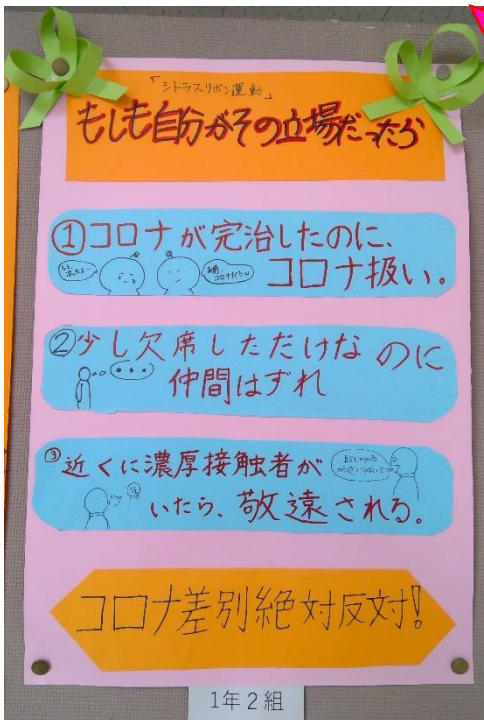 「シトラスリボン運動」
もしも自分がその立場だったら
①コロナが完治したのに、
コロナ扱い。
②少し欠席しただけなのに
仲間はずれ
③近くに濃厚接触者が
いたら、敬遠される。
コロナ差別絶対反対!
1年2組